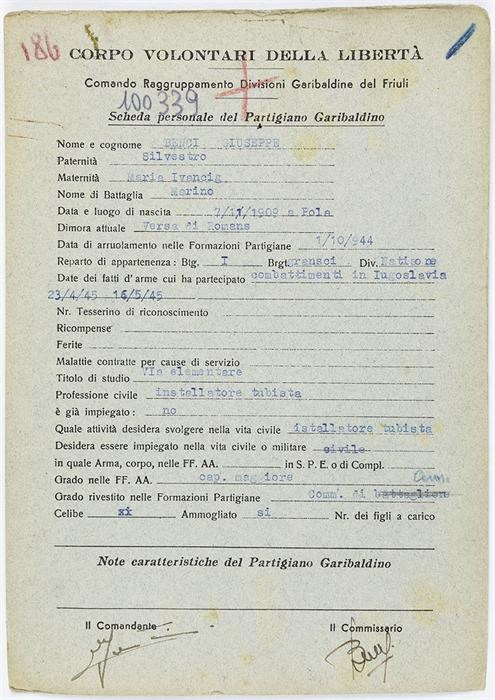 186
CORPO VOLONTARI DELLA LIBERTÀ
Comando Raggruppamento Divisioni Garibaldine del Friuli
100339
Scheda personale del Partigiano Garibaldino
Nome e cognome BENCI GIUSEPPE
Paternità Silvestro
Maternità Maria Ivancig
Nome di Battaglia Marino
Data e luogo di nascita 7/11/1909 a Pola
Dimora attuale Versa di Romans
Data di arruolamento nelle Formazioni Partigiane 1/10/944
Reparto di appartenenza: Btg. I Brgt. gransci Div. Natisone
Date dei fatti d'arme cui ha partecipato combattimenti in Iugoslavia
23/4/45 16/5/45
Nr. Tesserino di riconoscimento
Ricompense
Ferite
Malattie contratte per cause di servizio
Titolo di studio VIa elementare
Professione civile installatore tubista
è già impiegato: no
Quale attività desidera svolgere nella vita civile istallatore tubista
Desidera essere impiegato nella vita civile o militare civile
in quale Arma, corpo, nelle FF. AA. in S. P. E. o di Compl.
Grado nelle FF. AA. cap. maggiore
Grado rivestito nelle Formazioni Partigiane Comm. di battaglione
Celibe xi Ammogliato si Nr. dei figli a carico
Note caratteristiche del Partigiano Garibaldino
Il Comandante Il Commissario